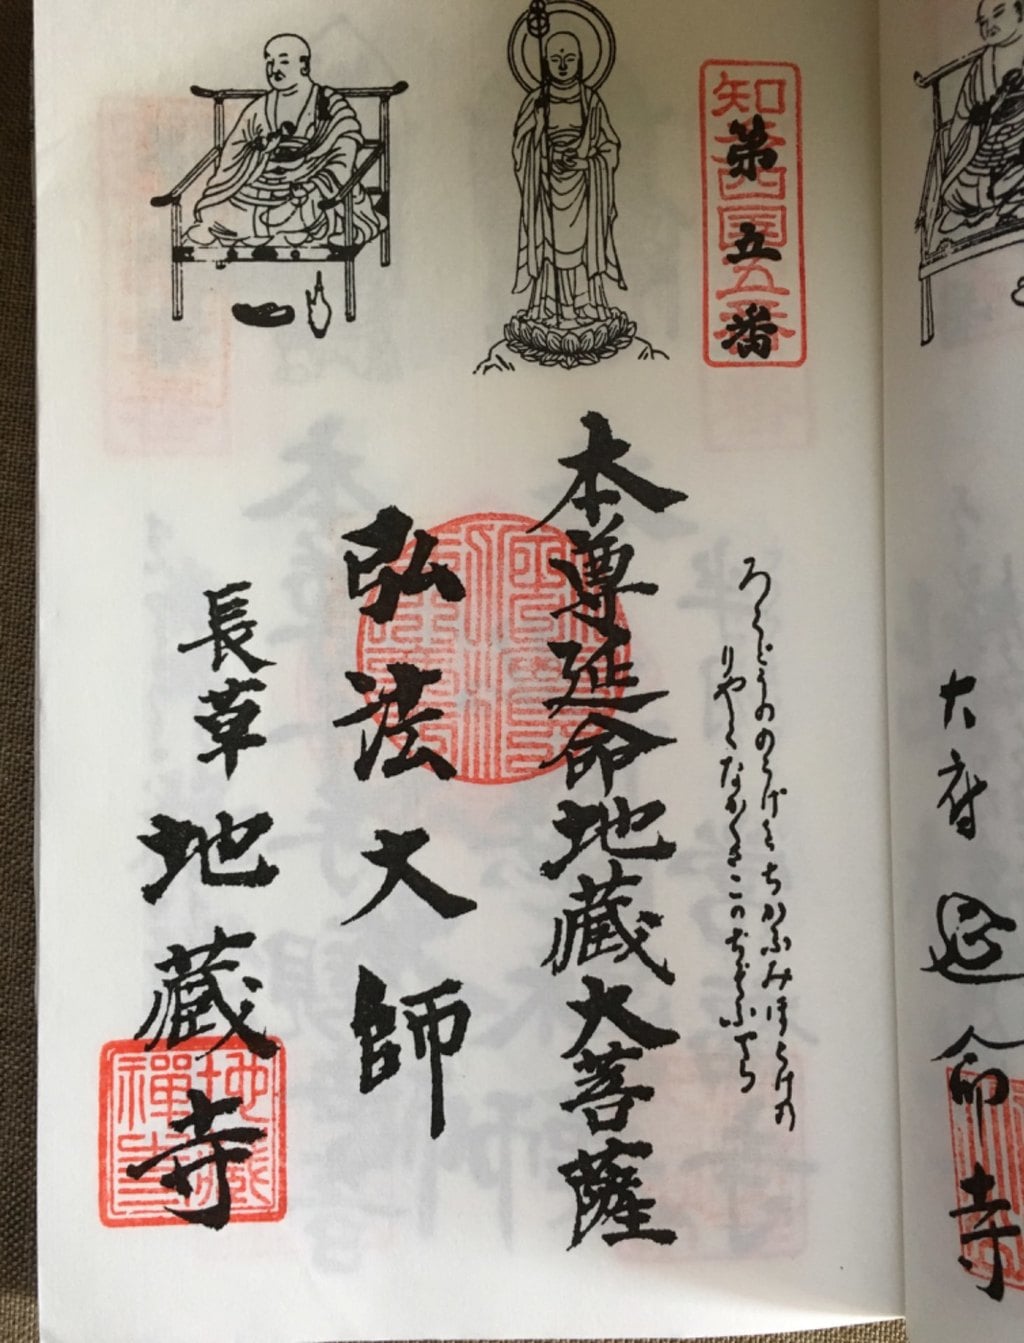 大府 延命寺
知多四国五番
第五番
ろくどうののうげをちかふみほとけの
りやくながくさこのぢぞふでら
本尊延命地蔵大菩薩
弘法大師
長草 地蔵寺
地蔵禪寺